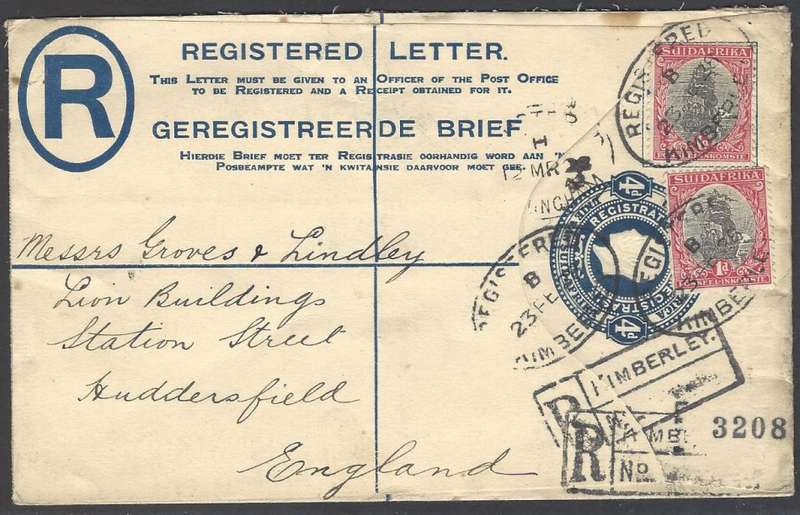 R
REGISTERED LETTER.
THIS LETTER MUST BE GIVEN TO AN OFFICER OF THE POST OFFICE
TO BE REGISTERED AND A RECEIPT OBTAINED FOR IT.
GEREGISTREERDE BRIEF
HIERDIE BRIEF MOET TER REGISTRASIE OORHANDIG WORD AAN
POSBEAMPTE WAT 'N KWITANSIE DAARVOOR MOET GEE.
12 MR
SUIDAFRIKA
REGISTERED
B
KIMBERLEY
SUIDAFRIKA
1D
POSSEEL-INKOMSTE
B
KIMBERLEY
4D
REGISTRAT
4D
REGISTERED
B
23 FE
KIMBERLEY
Messrs Groves & Lindley
Lion Buildings
Station Street
Huddersfield
England
R KIMBERLEY.
R
No.
3208